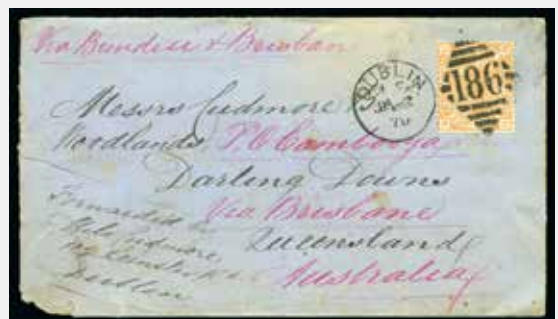 Via Brindisi & Brisbane
DUBLIN
186
70
Messrs Cudmore
Woodlands P.O. Cambooya
Darling Downs
Via Brisbane
Queensland
Australia
Forwarded by
Cudmore
Dublin